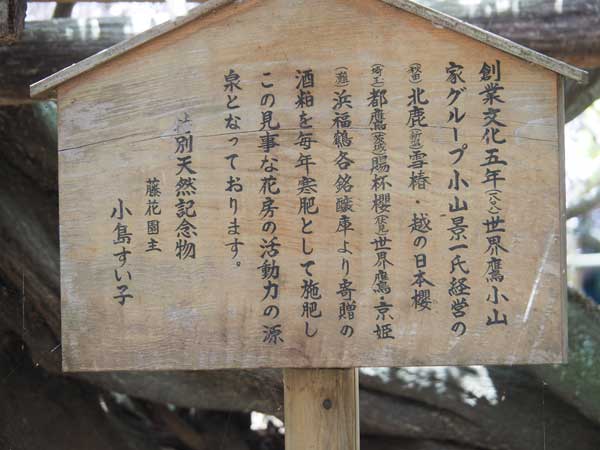 創業文化五年(一八〇八)世界鷹小山
家グループ小山景一氏経営の
(秋田)北鹿(新潟)雪椿・越の日本櫻
(埼玉)都鷹賜杯櫻世界鷹・京姫
(灘)浜福鶴各銘醸庫より寄贈の
酒粕を毎年寒肥として施肥し
この見事な花房の活動力の源
泉となっております。
特別天然記念物
藤花園主
小島すい子